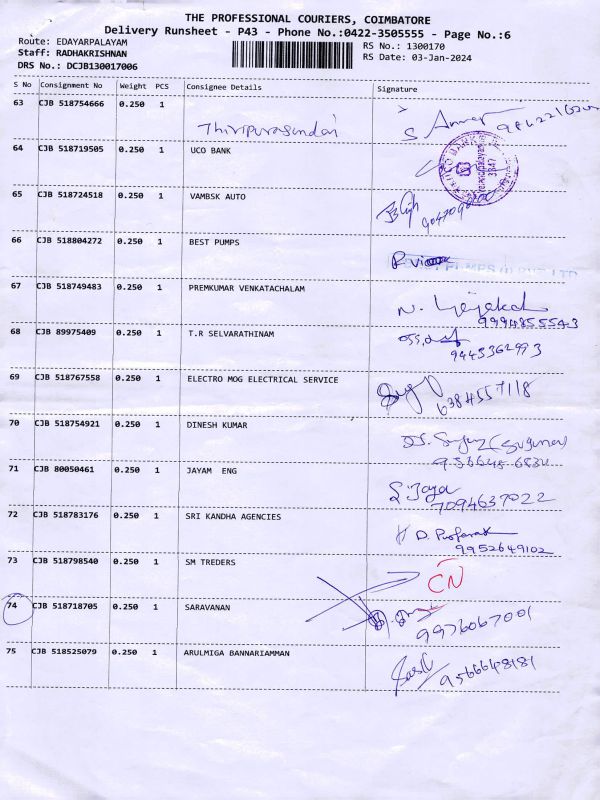 THE PROFESSIONAL COURIERS, COIMBATORE
Delivery Runsheet - P43 - Phone No.:0422-3505555 - Page No.:6
Route: EDAYARPALAYAM
Staff: RADHAKRISHNAN
DRS No.: DCJB130017006
RS No.: 1300170
RS Date: 03-Jan-2024
S No Consignment No Weight PCS Consignee Details Signature
63 CJB 518754666 0.250 1 Thiripurasundari
64 CJB 518719505 0.250 1 UCO BANK
65 CJB 518724518 0.250 1 VAMBSK AUTO
66 CJB 518804272 0.250 1 BEST PUMPS
67 CJB 518749483 0.250 1 PREMKUMAR VENKATACHALAM
68 CJB 89975409 0.250 1 T.R SELVARATHINAM
9445362993
69 CJB 518767558 0.250 1 ELECTRO MOG ELECTRICAL SERVICE
6384557118
70 CJB 518754921 0.250 1 DINESH KUMAR
71 CJB 80050461 0.250 1 JAYAM ENG S. Jaya
7094637022
72 CJB 518783176 0.250 1 SRI KANDHA AGENCIES
9952649102
73 CJB 518798540 0.250 1 SM TREDERS CN
74 CJB 518718705 0.250 1 SARAVANAN
9976067001
75 CJB 518525079 0.250 1 ARULMIGA BANNARIAMMAN
9566648181